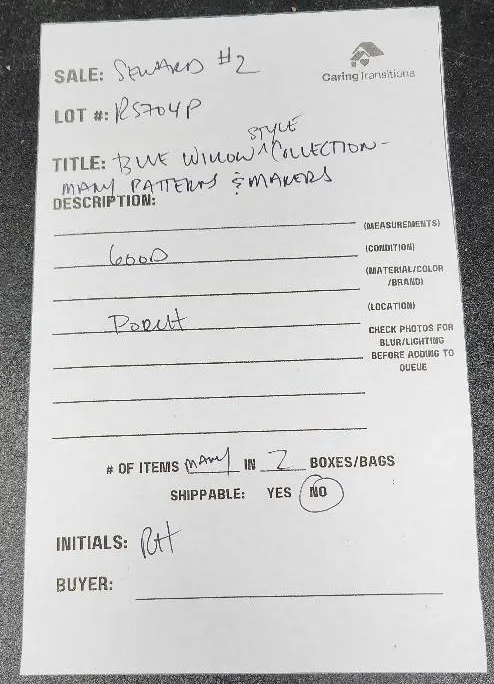 SALE: SEWARD #2
CaringTransitions
LOT #: RS704P
STYLE
TITLE: BLUE WILLOW ^ COLLECTION -
MANY PATTERNS & MAKERS
DESCRIPTION:
(MEASUREMENTS)
GOOD (CONDITION)
(MATERIAL/COLOR
/BRAND)
(LOCATION)
PORCH
CHECK PHOTOS FOR
BLUR/LIGHTING
BEFORE ADDING TO
QUEUE
# OF ITEMS MANY IN 2 BOXES/BAGS
SHIPPABLE: YES NO
INITIALS: RH
BUYER: